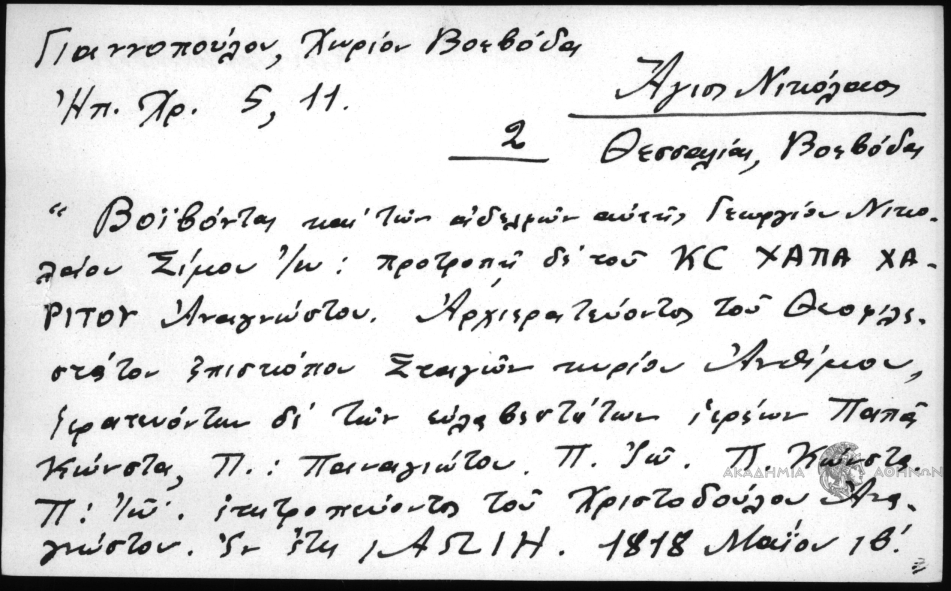 Γιαννοπούλου, Χωρίον Βοεβόδα
Ἠπ. Χρ. 5, 11.
Ἅγιος Νικόλαος
2
Θεσσαλίας, Βοεβόδα
“ Βοϊβόντας καὶ τῶν ἀδελφῶν αὐτῆς Γεωργίου Νικο-
λαίου Σίμου Ἰω : προτροπῇ δὲ τοῦ ΚC ΧΑΠΑ ΧΑ-
ΡΙΤΟΥ Ἀναγνώστου. Ἀρχιερατεύοντος τοῦ Θεοφιλε-
στάτου ἐπισκόπου Σταγῶν κυρίου Ἀνθίμου,
ἱερατευόντων δὲ τῶν εὐλαβεστάτων ἱερέων Παπᾶ
Κώνστα, Π. : Παναγιώτου. Π. Ἰῶ. Π. Κώνστα.
Π : Ἰῶ. ἐπιτροπεύοντος τοῦ Χριστοδούλου Ἀνα-
γνώστου. Ἐν ἔτει ͵ΑΩΙΗ. 1818 Μαΐου ιβ΄.
ΑΚΑΔΗΜΙΑ ΑΘΗΝΩΝ